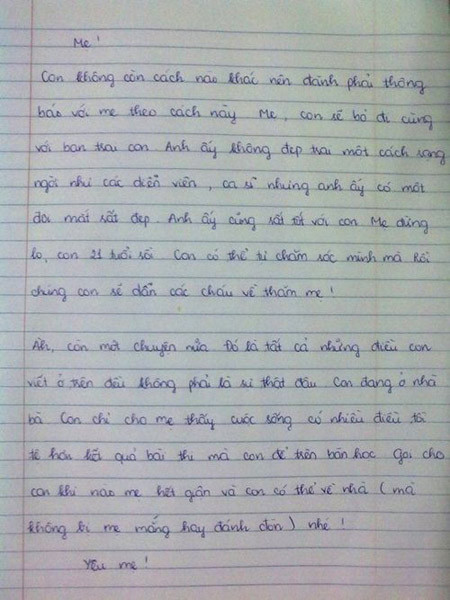 Mẹ !
Con không còn cách nào khác nên đành phải thông
báo với mẹ theo cách này Mẹ, con sẽ bỏ đi cùng
với bạn trai con Anh ấy không đẹp trai một cách sáng
ngời như các diễn viên, ca sĩ nhưng anh ấy có một
đôi mắt rất đẹp. Anh ấy cũng rất tốt với con Mẹ đừng
lo, con 21 tuổi rồi Con có thể tự chăm sóc mình mà Rồi
chúng con sẽ dẫn các cháu về thăm mẹ !
Ah, còn một chuyện nữa Đó là tất cả những điều con
viết ở trên đều không phải là sự thật đâu Con đang ở nhà
bà Con chỉ cho mẹ thấy cuộc sống có nhiều điều tồi
tệ hơn kết quả bài thi mà con để trên bàn học Gọi cho
con khi nào mẹ hết giận và con có thể về nhà (mà
không bị mẹ mắng hay đánh đòn) nhé !
Yêu mẹ !